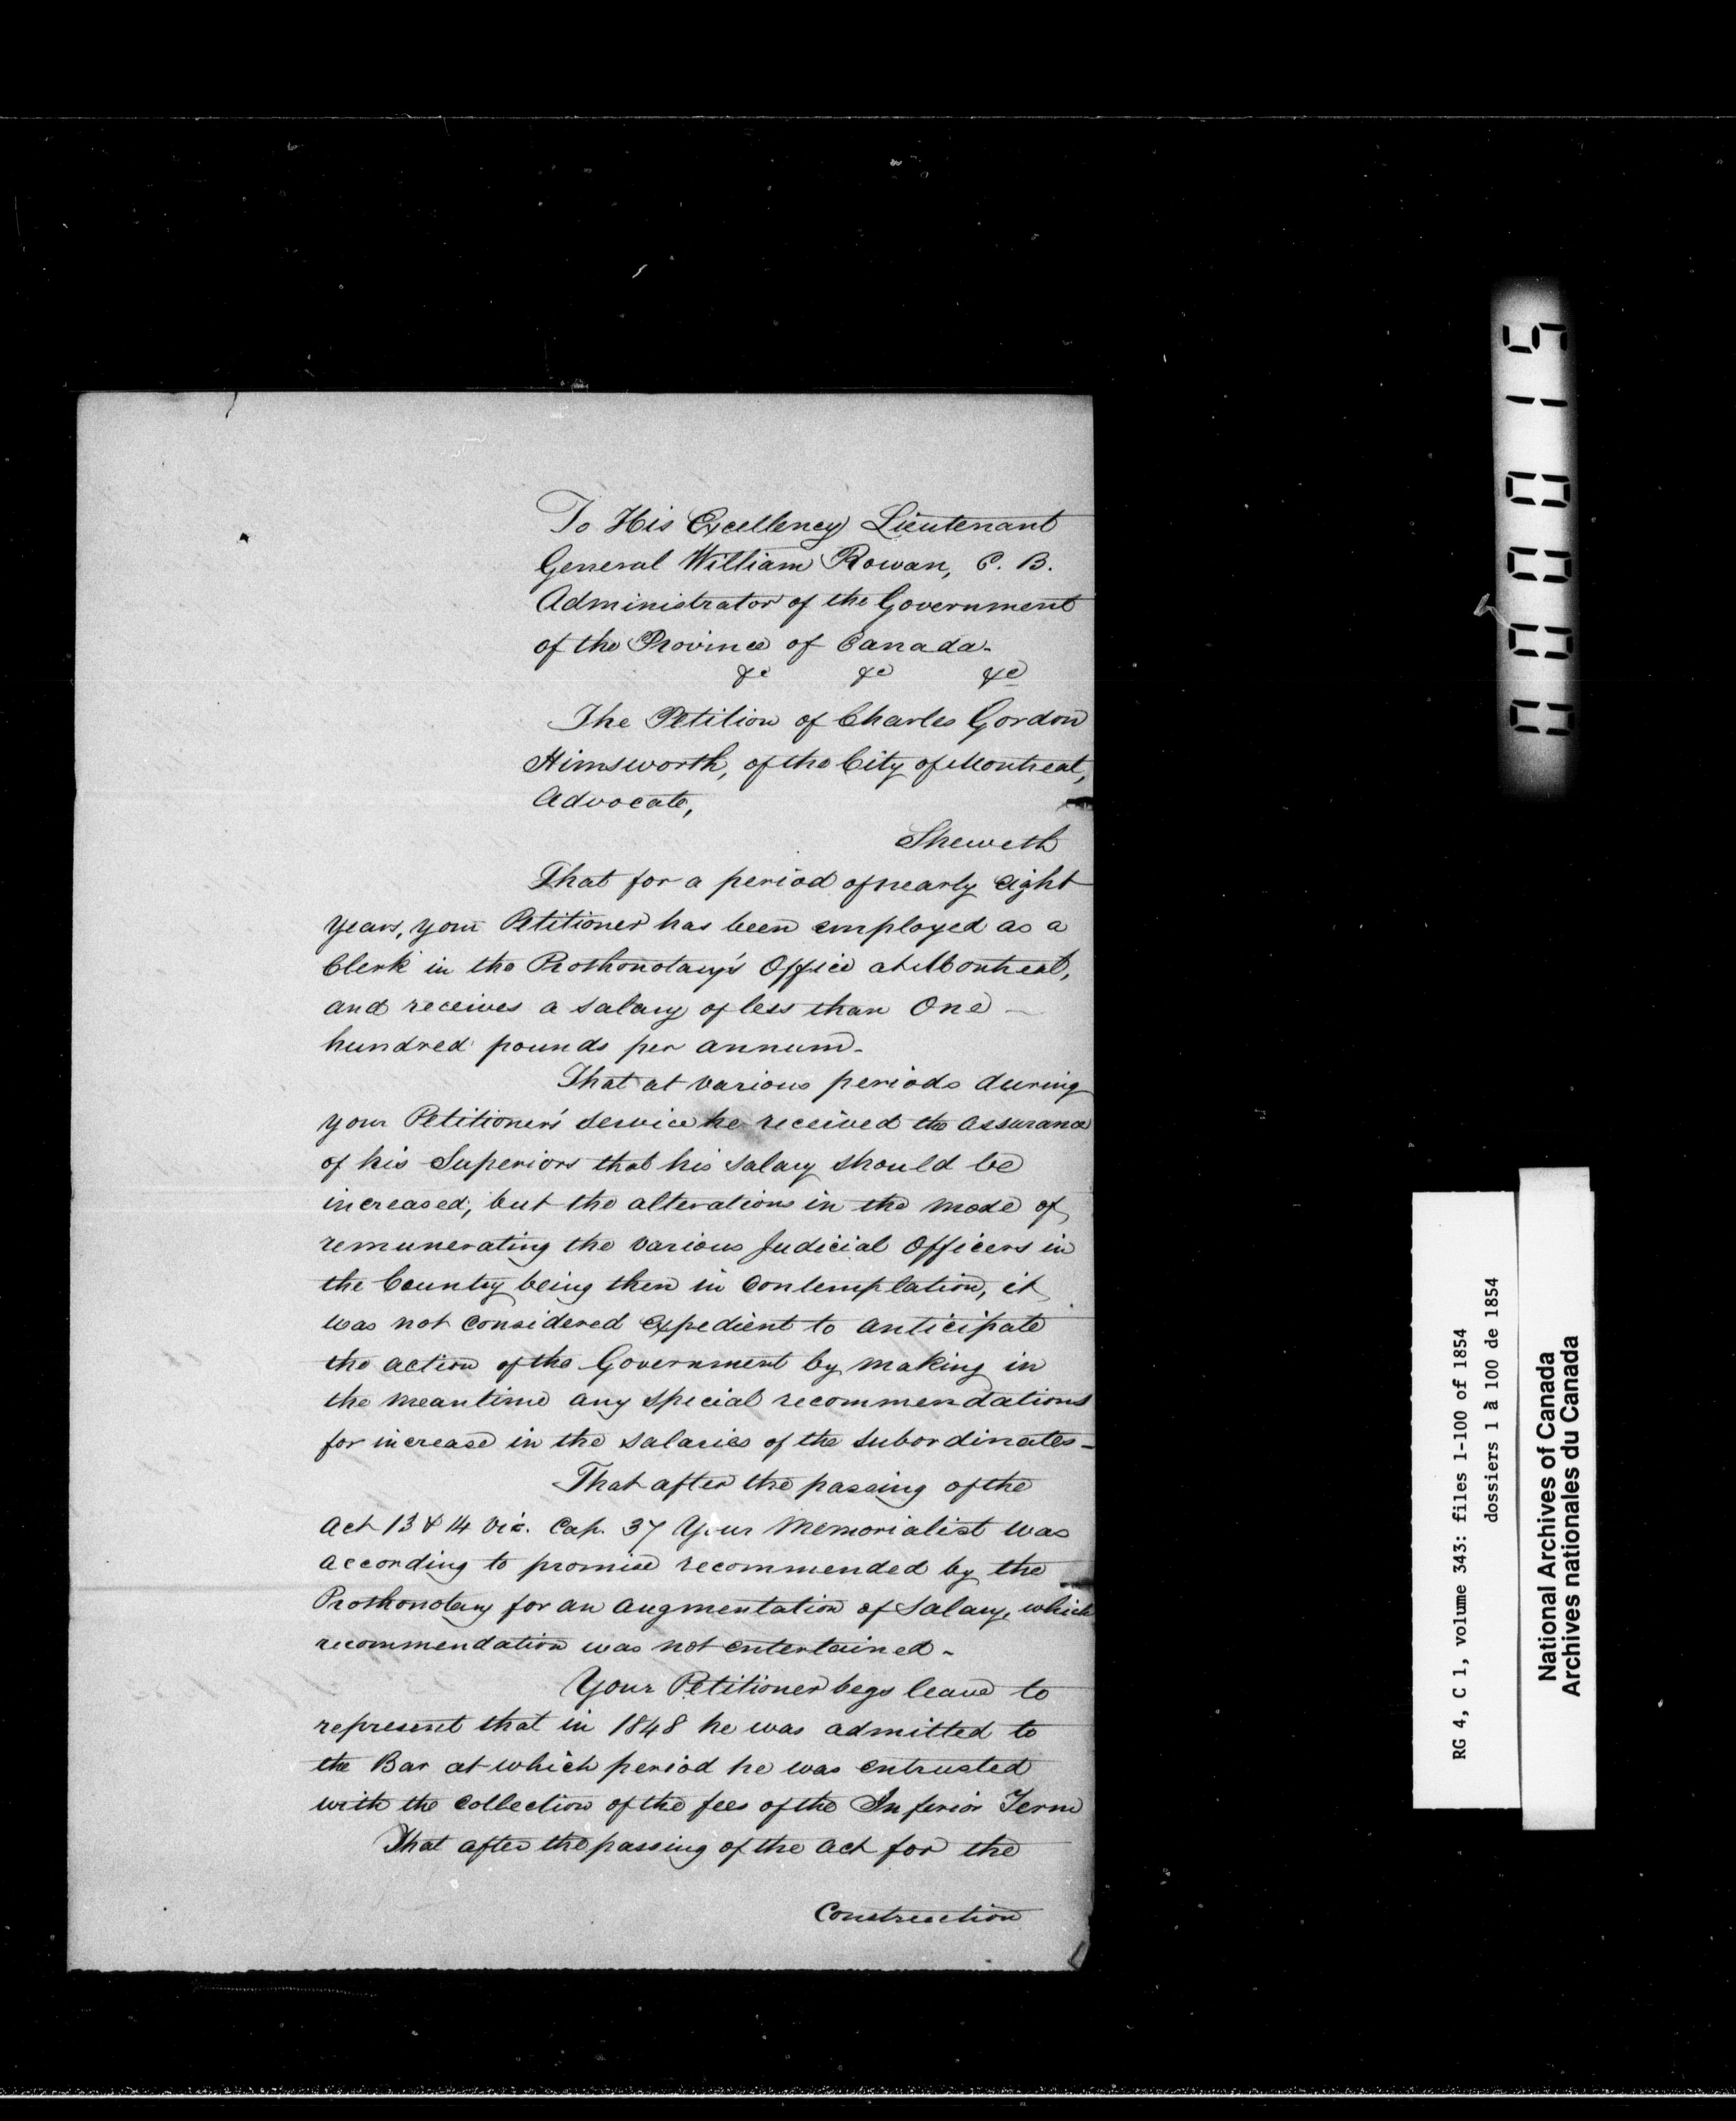 To His Excellency Lieutenant
General William Rowan, C. B.
Administrator of the Government
of the Province of Canada.
&c &c &c
The Petition of Charles Gordon
Himsworth, of the City of Montreal,
Advocate,
Sheweth
That for a period of nearly eight
years, your Petitioner has been employed as a
Clerk in the Prothonotary's Office at Montreal,
and receives a salary of less than One
hundred pounds per annum.
That at various periods during
your Petitioner's service he received the assurance
of his Superiors that his salary should be
increased, but the alterations in the mode of
remunerating the various Judicial Officers in
the Country being then in contemplation, it
was not considered expedient to anticipate
the action of the Government by making in
the meantime any special recommendations
for increase in the salaries of the subordinates-
That after the passing of the
Act 13 & 14 Vic. Cap. 37 Your Memorialist was
according to promise recommended by the
Prothonotary for an augmentation of Salary, which
recommendation was not entertained-
Your Petitioner begs leave to
represent that in 1848 he was admitted to
the Bar at which period he was entrusted
with the collection of the fees of the Inferior Term
That after the passing of the Act for the
Construction
000015
RG 4, C 1, volume 343: files 1-100 of 1854
dossiers 1 à 100 de 1854
National Archives of Canada
Archives nationales du Canada